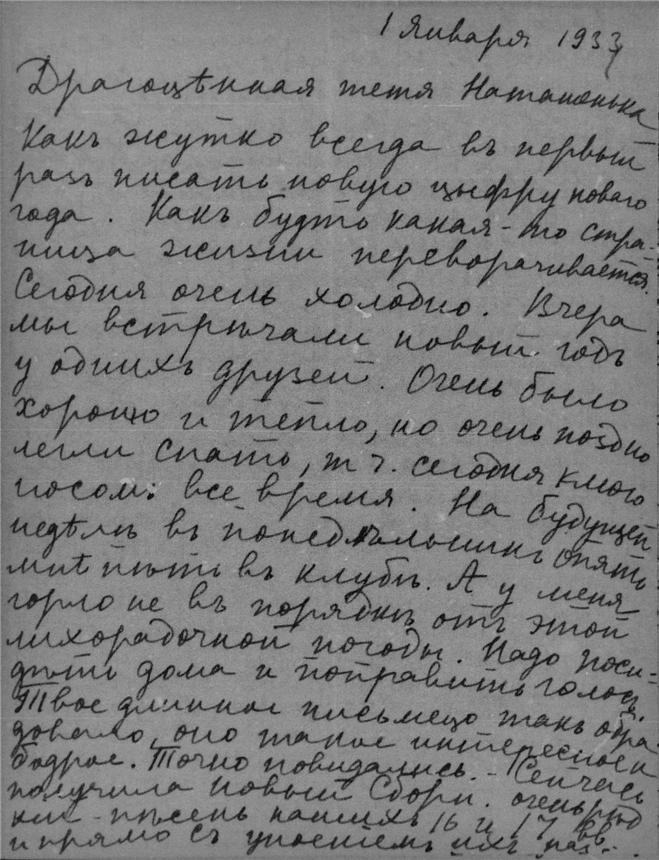 1 Января 1933
Драгоцѣнная тетя Наташенька
Какъ жутко всегда въ первый
разъ писать новую цыфру новаго
года. Какъ будто какая-то стра-
ница жизни переворачивается.
Сегодня очень холодно. Вчера
мы встрѣчали новый годъ
у однихъ друзей. Очень было
хорошо и тепло, но очень поздно
легли спать, т ч. сегодня клюю
носомъ все время. На будущей
недѣлѣ въ понедѣльникъ опять
мнѣ пѣть въ клубѣ. А у меня
горло не въ порядкѣ отъ этой
лихорадочной погоды. Надо поси-
дѣть дома и поправить голосъ.
Твое длинное письмецо такъ обра-
довало, оно такое интересное и
бодрое. Точно повидались. - Сейчасъ
получила новый Сборн. очень рѣд
ких - пѣсень нашихъ 16 и 17 вв.
и прямо съ упоеніемъ ихъ раз-